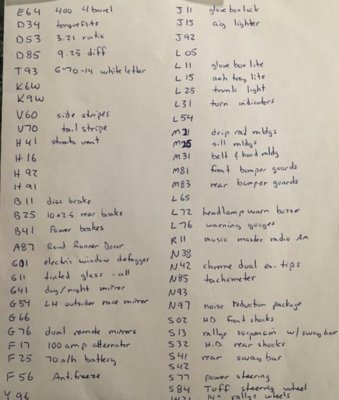 E64 400 4 barrel
D34 torqueflite
D53 3.21 ratio
D85 9.25 diff
T93 G-70-14 white letter
K6W
K9W
V60 side stripes
V70 tail stripe
H41 strato vent
H16
H92
H91
B11 disc brake
B25 10x2.5 rear brake
B41 Power brakes
A87 Road Runner Decor
G01 electric window defogger
G11 tinted glass - all
G41 day/night mirror
G54 LH outside race mirror
G66
G76 dual remote mirrors
F17 100 amp alternator
F25 70 a/h battery
F56 Antifreeze
Y96
J11 glove box lock
J15 cig lighter
J92
L05
L11 glove box lite
L15 ash tray lite
L25 trunk light
L31 turn indicators
L54
M21 drip rad mldgs
M25 sill mldgs
M31 belt & hood mldg
M81 front bumper guards
M83 rear bumper guards
L65
L72 headlamp warn buzzer
L76 warning guages
R11 music master radio Am
N38
N42 chrome dual ex. tips
N85 tachometer
N93
N97 noise reduction package
S02 HD front shocks
S13 rallye suspension w/ sway bar
S32 H.D. rear shocks
S41 rear sway bar
S42
S77 power steering
S84 Tuff steering wheel
W21 14" rallye wheels